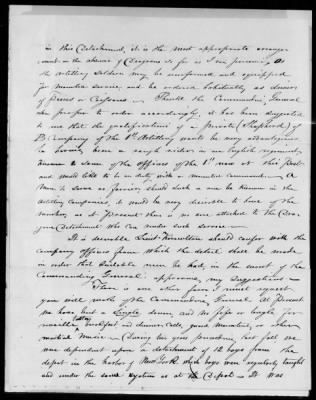 in this Detachment, it is the most appropriate arrange-
ment in the absence of Dragoons so far as I can perceive, as
the Artillery Soldiers may be uniformed and equipped
for mounted service, and be ordered habitually as drivers
of Pieces or Caissons — Should the Commanding General
see proper to order accordingly, it has been suggested
to me that the qualifications of a Private (Shepherd) of
B. Company of the 1st Artillery would be very advantageous
he having been a rough rider in an English regiment,
known to some of the Officers of the 1st now at this Post
and would like to be on duty with a mounted command — A
Man to serve as farrier, should such a one be known in the
Artillery companies, it would be very desirable to have of the
number, as at Present there is no one attached to the Dra-
goon Detachment who can render such service —
It is desirable Lieut. Hamilton should confer with the
company officers from which the detail shall be made
in order that suitable men be had, in the event of the
Commanding General approving my suggestions
There is one other favor I must request
you will make of the Commanding General. At Present
We have but a single drum, and no fife or bugle for
reveille, tattoo, breakfast and dinner Calls, guard Mounting, or other
martial Music — During the year preceding last fall we
were dependent upon a detachment of 12 boys from the
depot in the harbor of New York which boys were regularly taught
and under the same system as at the Depot — It was